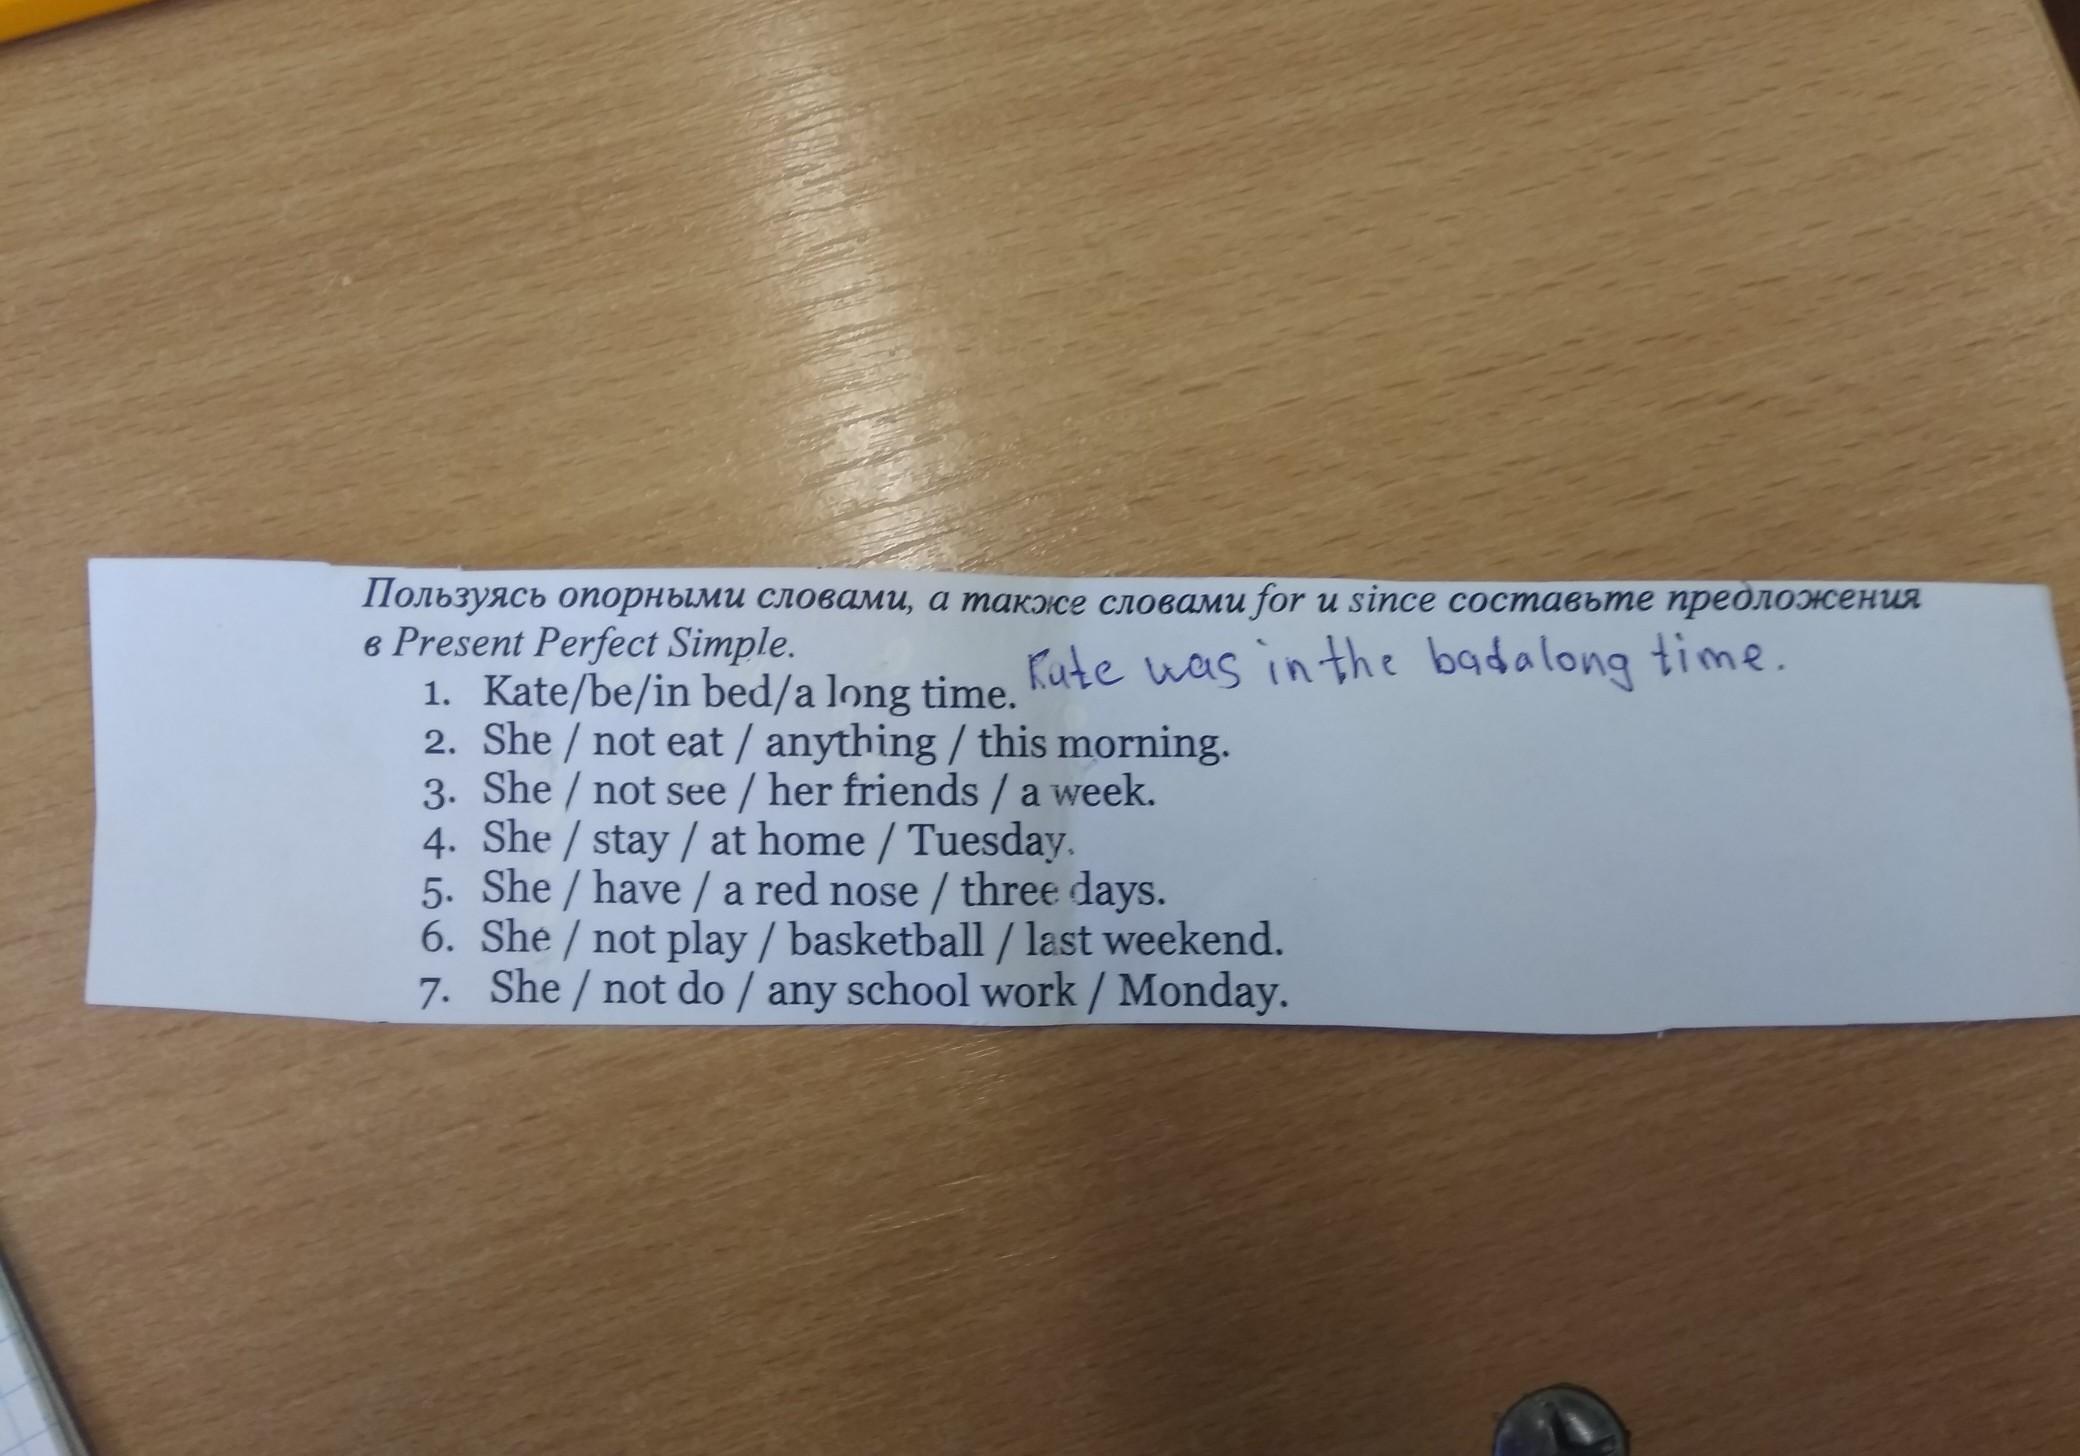 Пользуясь опорными словами, а также словами for и since составьте предложения
в Present Perfect Simple.
1. Kate/be/in bed/a long time. Kate was in the bad a long time.
2. She / not eat / anything / this morning.
3. She / not see / her friends / a week.
4. She / stay / at home / Tuesday.
5. She / have / a red nose / three days.
6. She / not play / basketball / last weekend.
7. She / not do / any school work / Monday.